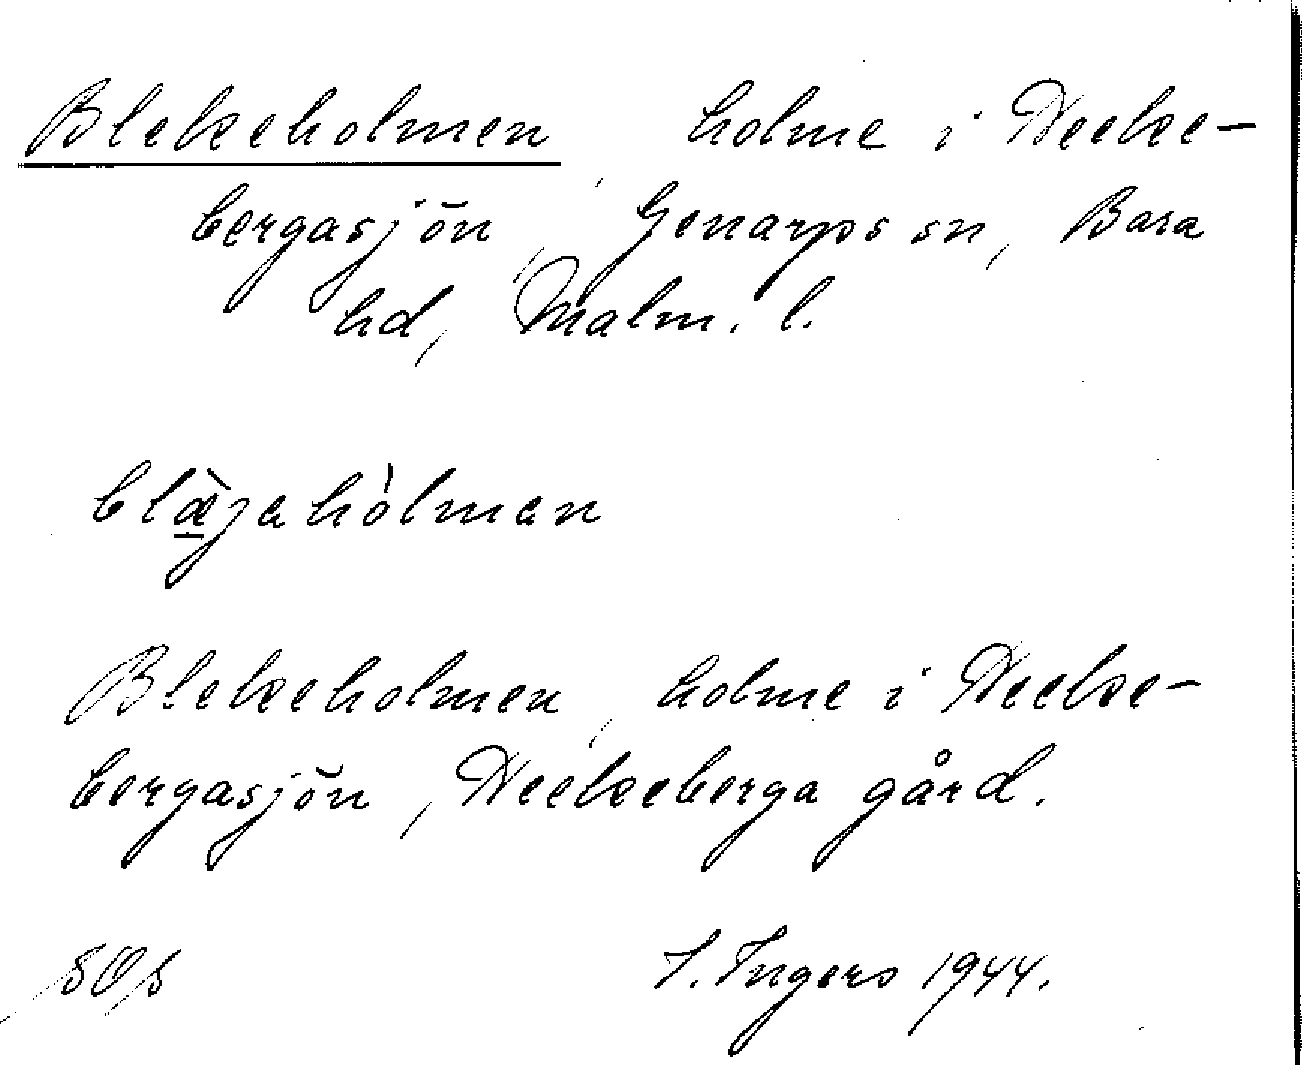 Blekeholmen, holme i Heeke-
bergasjön, Genarps sn, Bara
hd, Malm. l.
blæ̀jahólman
Blekeholmen, holme i Heeke-
bergasjön, Heekeberga gård.
I. Ingers 1944.